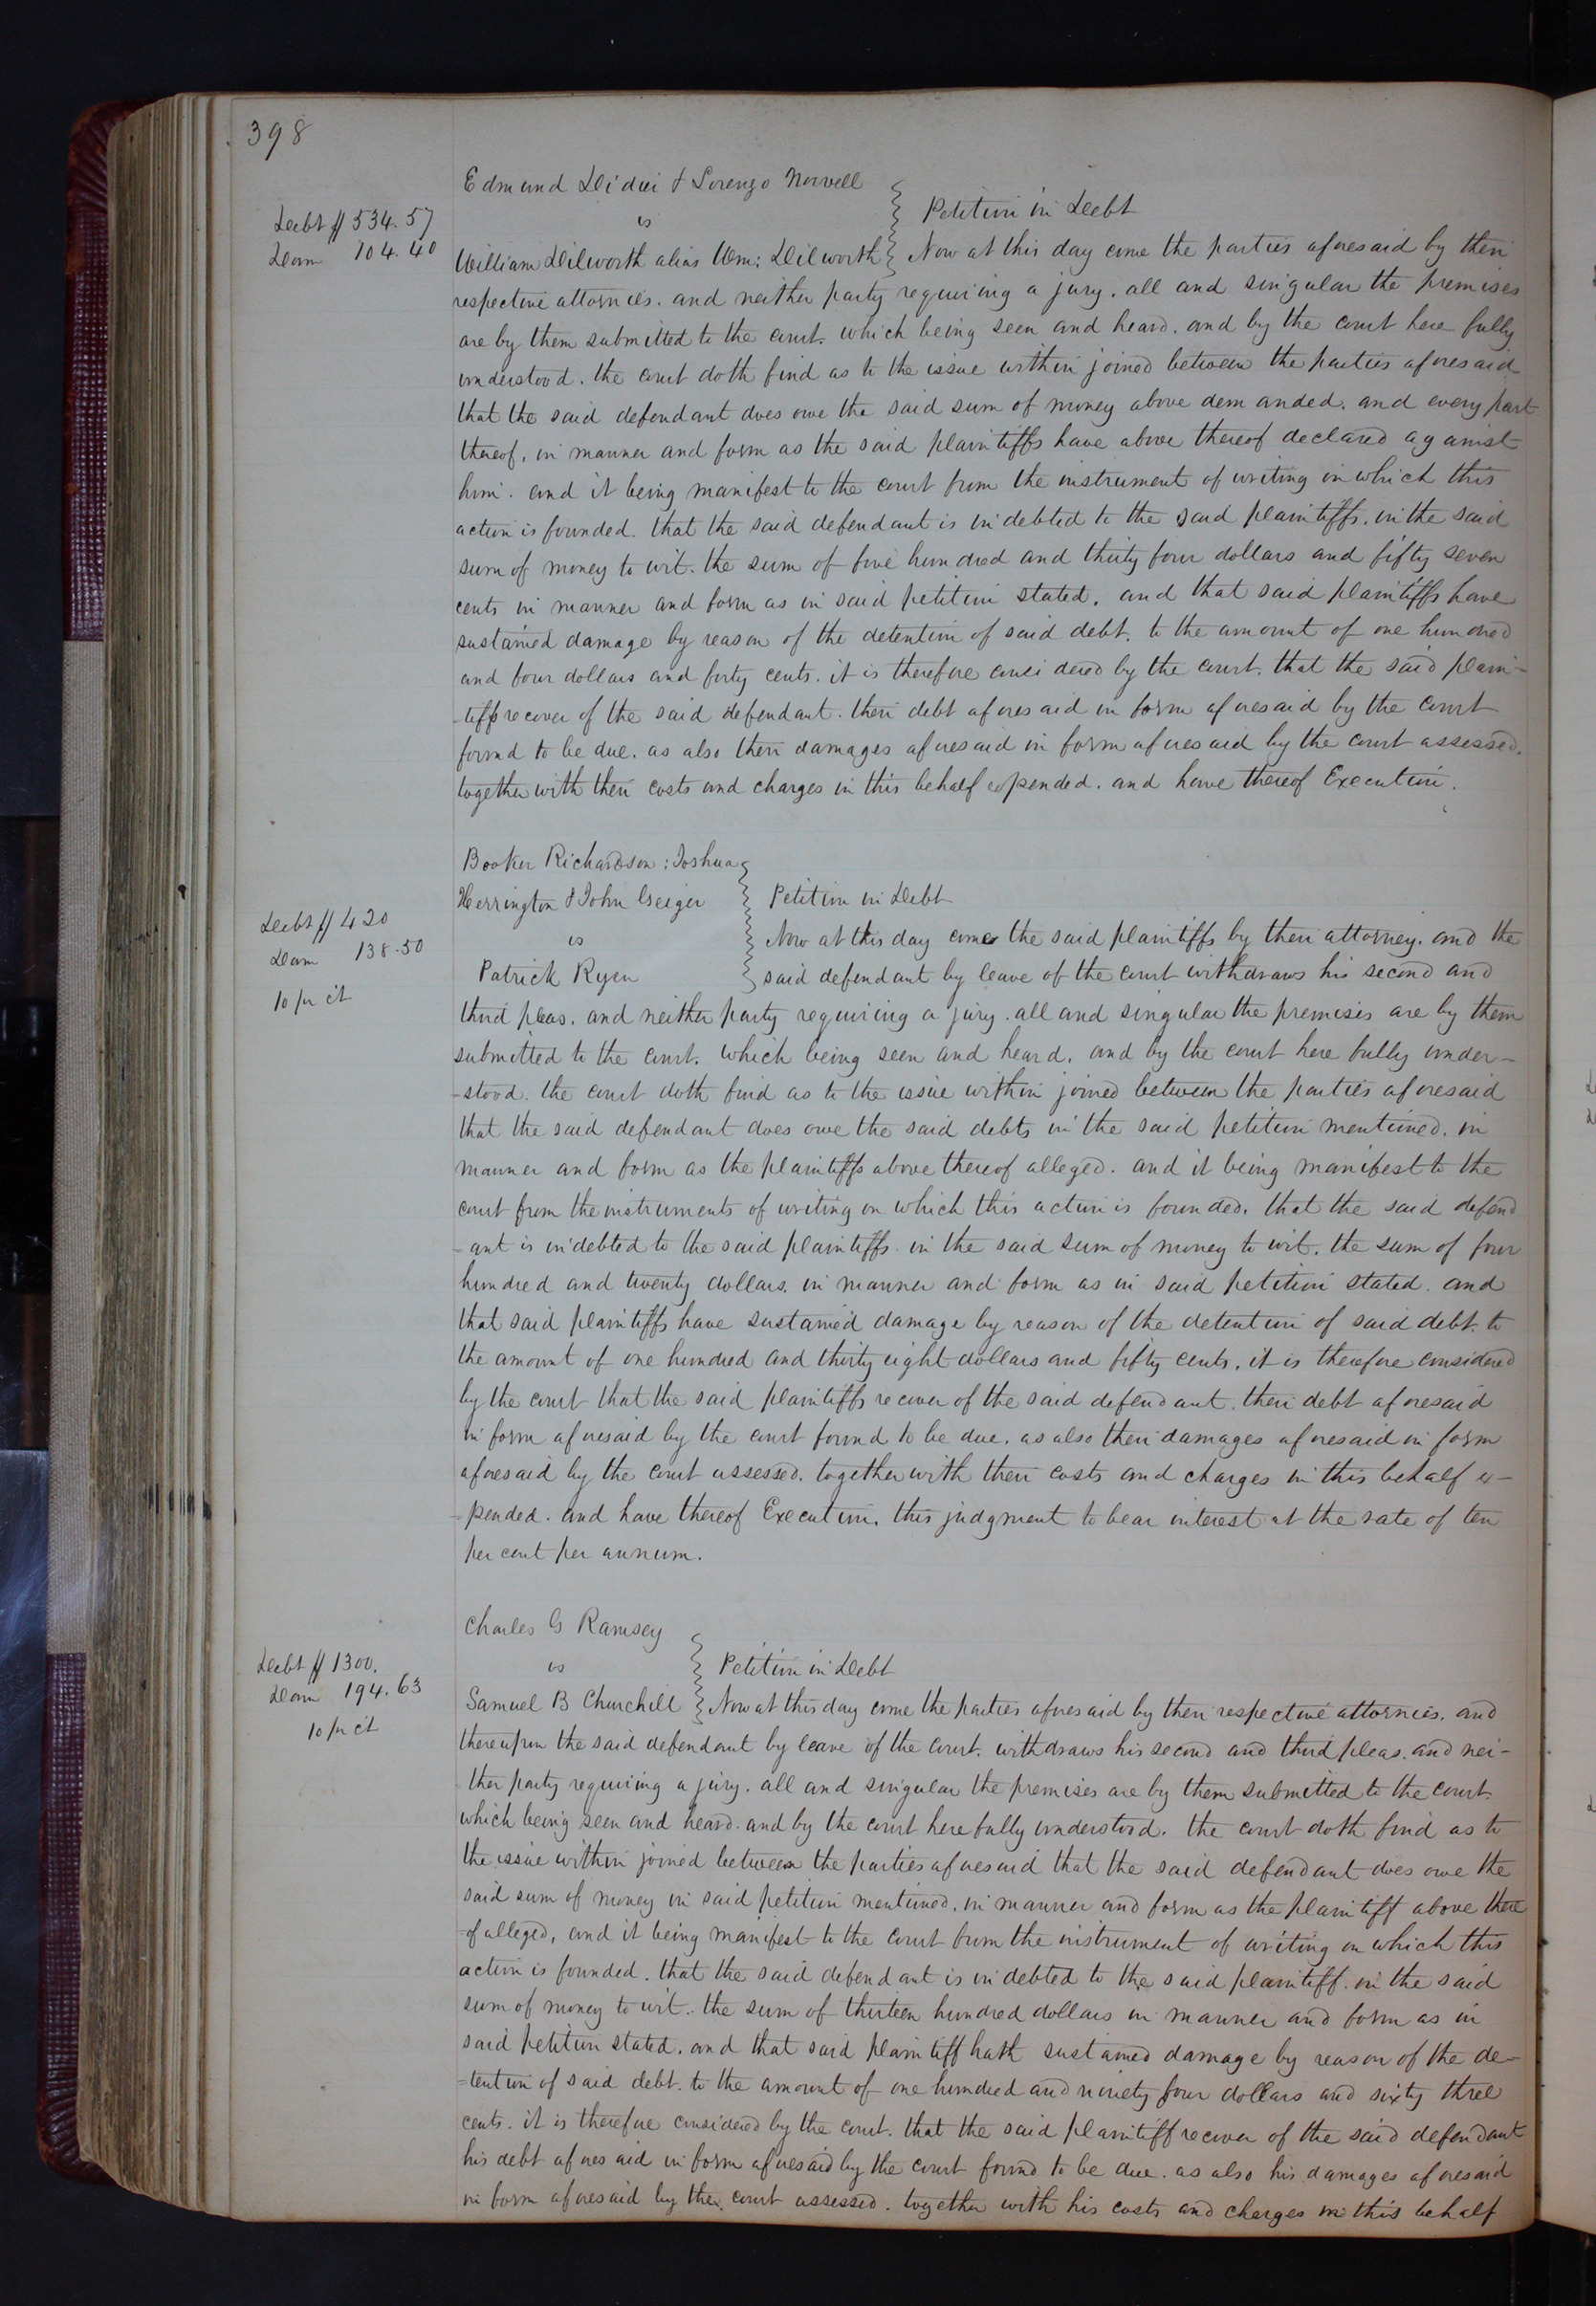 398
Edmund Didier & Lorenzo Norvell
vs
Petition in Debt
Debt $534.57
Dam 104.40
William Dilworth alias Wm: Dilworth Now at this day come the parties aforesaid by their
respective attornies. and neither party requiring a jury. all and singular the premises
are by them submitted to the court. which being seen and heard. and by the court here fully
understood. the court doth find as to the issue within joined between the parties aforesaid
that the said defendant does owe the said sum of money above demanded. and every part
thereof. in manner and form as the said plaintiffs have above thereof declared against
him. and it being manifest to the court from the instrument of writing on which this
action is founded. that the said defendant is indebted to the said plaintiffs. in the said
sum of money to wit. the sum of five hundred and thirty four dollars and fifty seven
cents in manner and form as in said petition stated. and that said plaintiffs have
sustained damage by reason of the detention of said debt. to the amount of one hundred
and four dollars and forty cents. it is therefore considered by the court. that the said plain-
-tiffs recover of the said defendant. their debt aforesaid in form aforesaid by the court
found to be due. as also their damages aforesaid in form aforesaid by the court assessed.
together with their costs and charges in this behalf expended. and have thereof Execution.
Booker Richardson: Joshua
Herrington & John Geiger
vs
Patrick Ryan
Petition in Debt
Debt $420
Dam 138.50
10 pr ct
Now at this day comes the said plaintiffs by their attorney. and the
said defendant by leave of the court withdraws his second and
third pleas. and neither party requiring a jury. all and singular the premises are by them
submitted to the court. which being seen and heard. and by the court here fully under-
-stood. the court doth find as to the issue within joined between the parties aforesaid
that the said defendant does owe the said debts in the said petition mentioned. in
manner and form as the plaintiffs above thereof alleged. and it being manifest to the
court from the instruments of writing on which this action is founded. that the said defend
-ant is indebted to the said plaintiffs in the said sum of money to wit. the sum of four
hundred and twenty dollars. in manner and form as in said petition stated. and
that said plaintiffs have sustained damage by reason of the detention of said debt. to
the amount of one hundred and thirty eight dollars and fifty cents. it is therefore considered
by the court that the said plaintiffs recover of the said defendant. their debt aforesaid
in form aforesaid by the court found to be due. as also their damages aforesaid in form
aforesaid by the court assessed. together with their costs and charges in this behalf ex-
-pended. and have thereof Execution. this judgment to bear interest at the rate of ten
per cent per annum.
Charles G Ramsey
vs
Petition in Debt
Debt $1300.
Dam 194.63
10 pr ct
Samuel B Churchill Now at this day come the parties aforesaid by their respective attornies. and
thereupon the said defendant by leave of the court. withdraws his second and third pleas. and nei-
ther party requiring a jury. all and singular the premises are by them submitted to the court.
which being seen and heard. and by the court here fully understood. the court doth find as to
the issue within joined between the parties aforesaid that the said defendant does owe the
said sum of money in said petition mentioned. in manner and form as the plaintiff above there
-of alleged, and it being manifest to the court from the instrument of writing on which this
action is founded. that the said defendant is indebted to the said plaintiff. in the said
sum of money to wit. the sum of thirteen hundred dollars in manner and form as in
said petition stated. and that said plaintiff hath sustained damage by reason of the de-
=tention of said debt. to the amount of one hundred and ninety four dollars and sixty three
cents. it is therefore considered by the court. that the said plaintiff recover of the said defendant
his debt aforesaid in form aforesaid by the court found to be due. as also his damages aforesaid
in form aforesaid by the court assessed. together with his costs and charges in this behalf